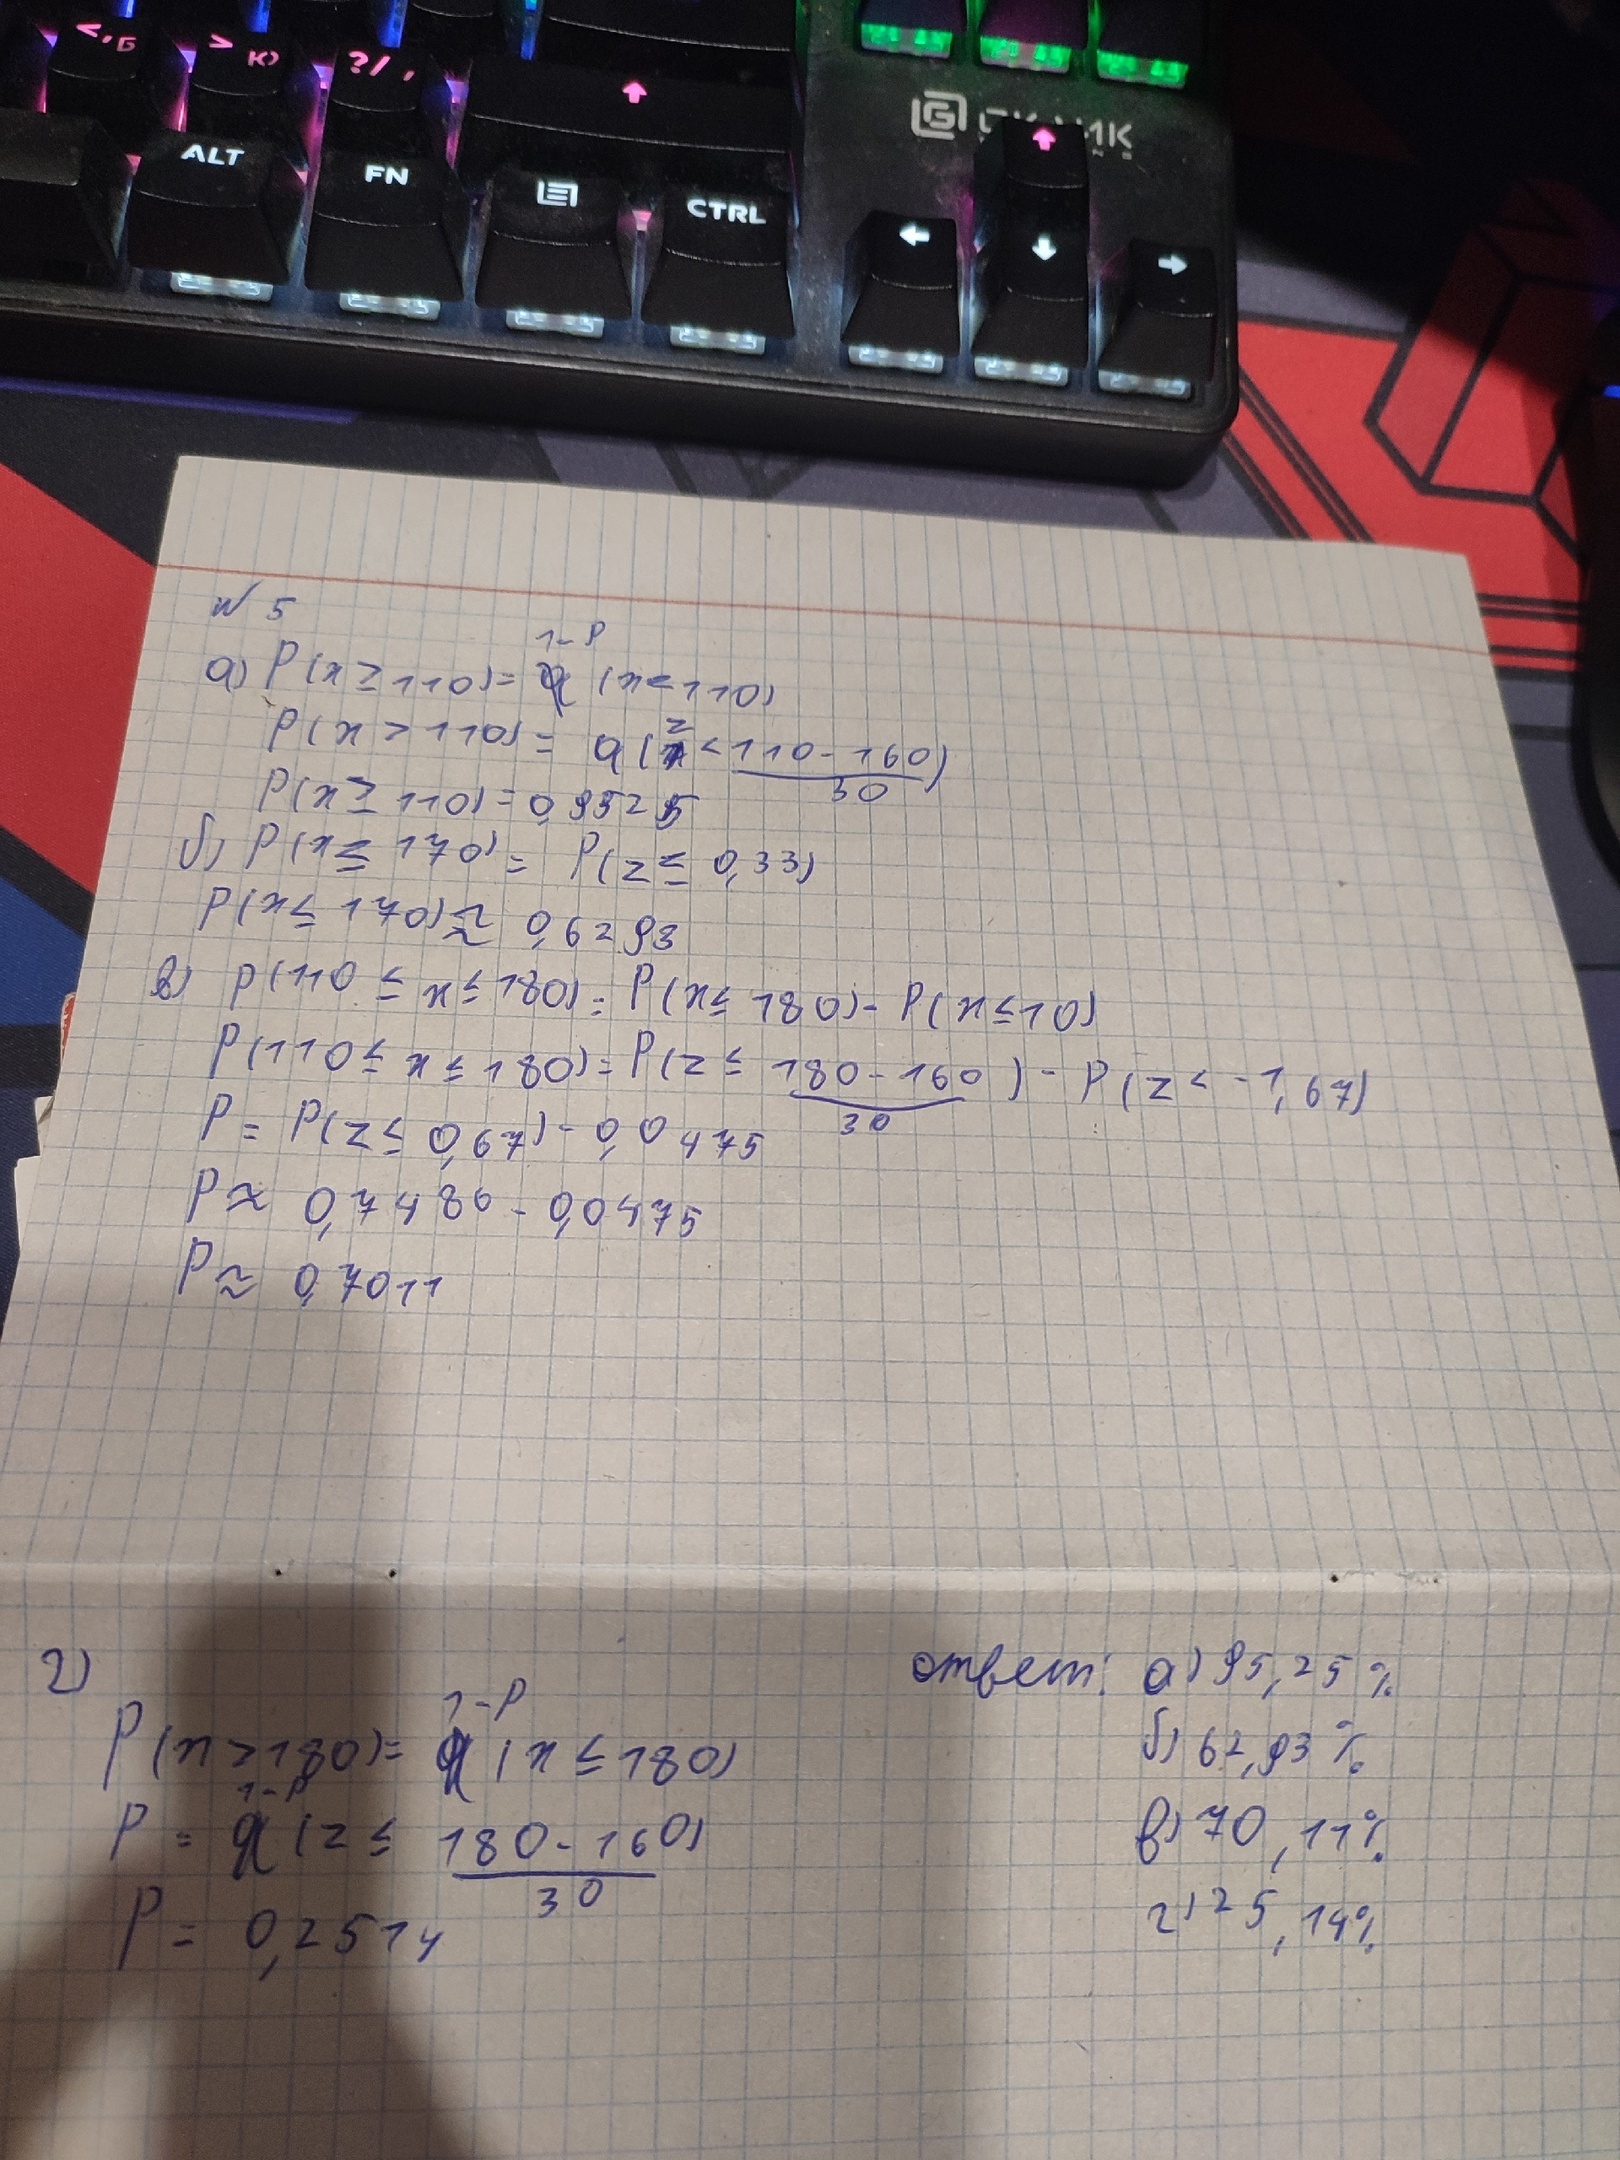 <, Б
> Ю
?/ ,
ALT
FN
CTRL
№ 5
1-P
а) P(x ≥ 110) = (x < 110)
P(x > 110) = q(z < 110-160)
30
P(x ≥ 110) = 0,9525
б) P(x ≤ 170) = P(z ≤ 0,33)
P(x ≤ 170) ≈ 0,6293
в) P(110 ≤ x ≤ 180) = P(x ≤ 180) - P(x ≤ 10)
P(110 ≤ x ≤ 180) = P(z ≤ 180-160) - P(z < -1,67)
30
P = P(z ≤ 0,67) - 0,0475
P ≈ 0,7486 - 0,0475
P ≈ 0,7011
г)
1-P
P(x > 180) = (x ≤ 180)
1-P
P = (z ≤ 180-160)
30
P = 0,2514
ответ: а) 95,25%
б) 62,93%
в) 70,11%
г) 25,14%